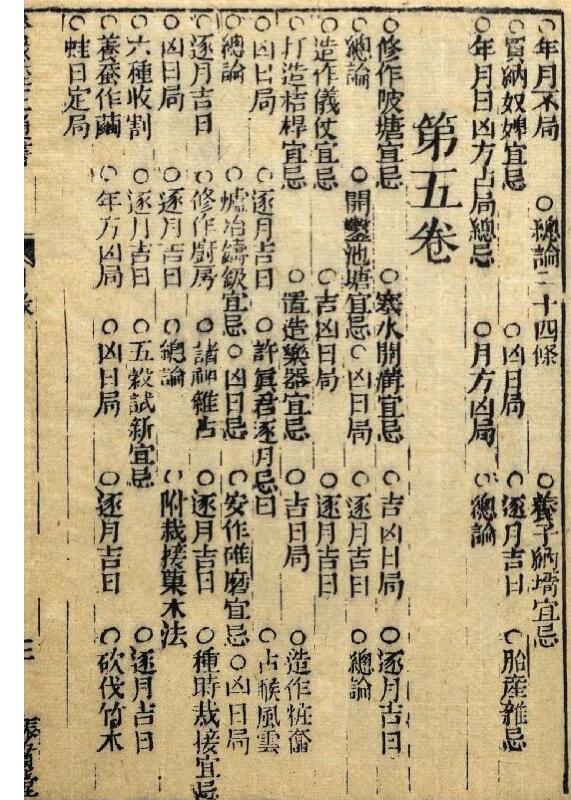 ○年月不局 ○總論二十四條 ○養子納壻宜忌
○買納奴婢宜忌 ○凶日局 ○逐月吉日 ○胎產雜忌
○年月日凶方占局總忌 ○月方凶局 ○總論
第五卷
○修作陂塘宜忌 ○塞水開溝宜忌 ○吉凶日局 ○逐月吉日
○總論 ○開鑿池塘宜忌 ○凶日局 ○逐月吉日 ○總論
○造作儀仗宜忌 ○吉凶日局 ○逐月吉日
○打造桔槹宜忌 ○置造樂器宜忌 ○吉日局 ○造作粧奩
○凶日局 ○逐月吉日 ○許眞君逐月忌日 ○占候風雲
○總論 ○爐冶鑄鈒宜忌 ○凶日忌 ○安作碓磨宜忌 ○凶日局
○逐月吉日 ○修作廚房 ○諸神雜占 ○逐月吉日 ○種時栽接宜忌
○凶日局 ○逐月吉日 ○總論 附栽接菓木法
○六種收割 ○逐月吉日 ○五穀試新宜忌 ○逐月吉日
○養蠶作繭 ○年方凶局 ○凶日局 ○逐月吉日 ○砍伐竹木
○蛀日定局